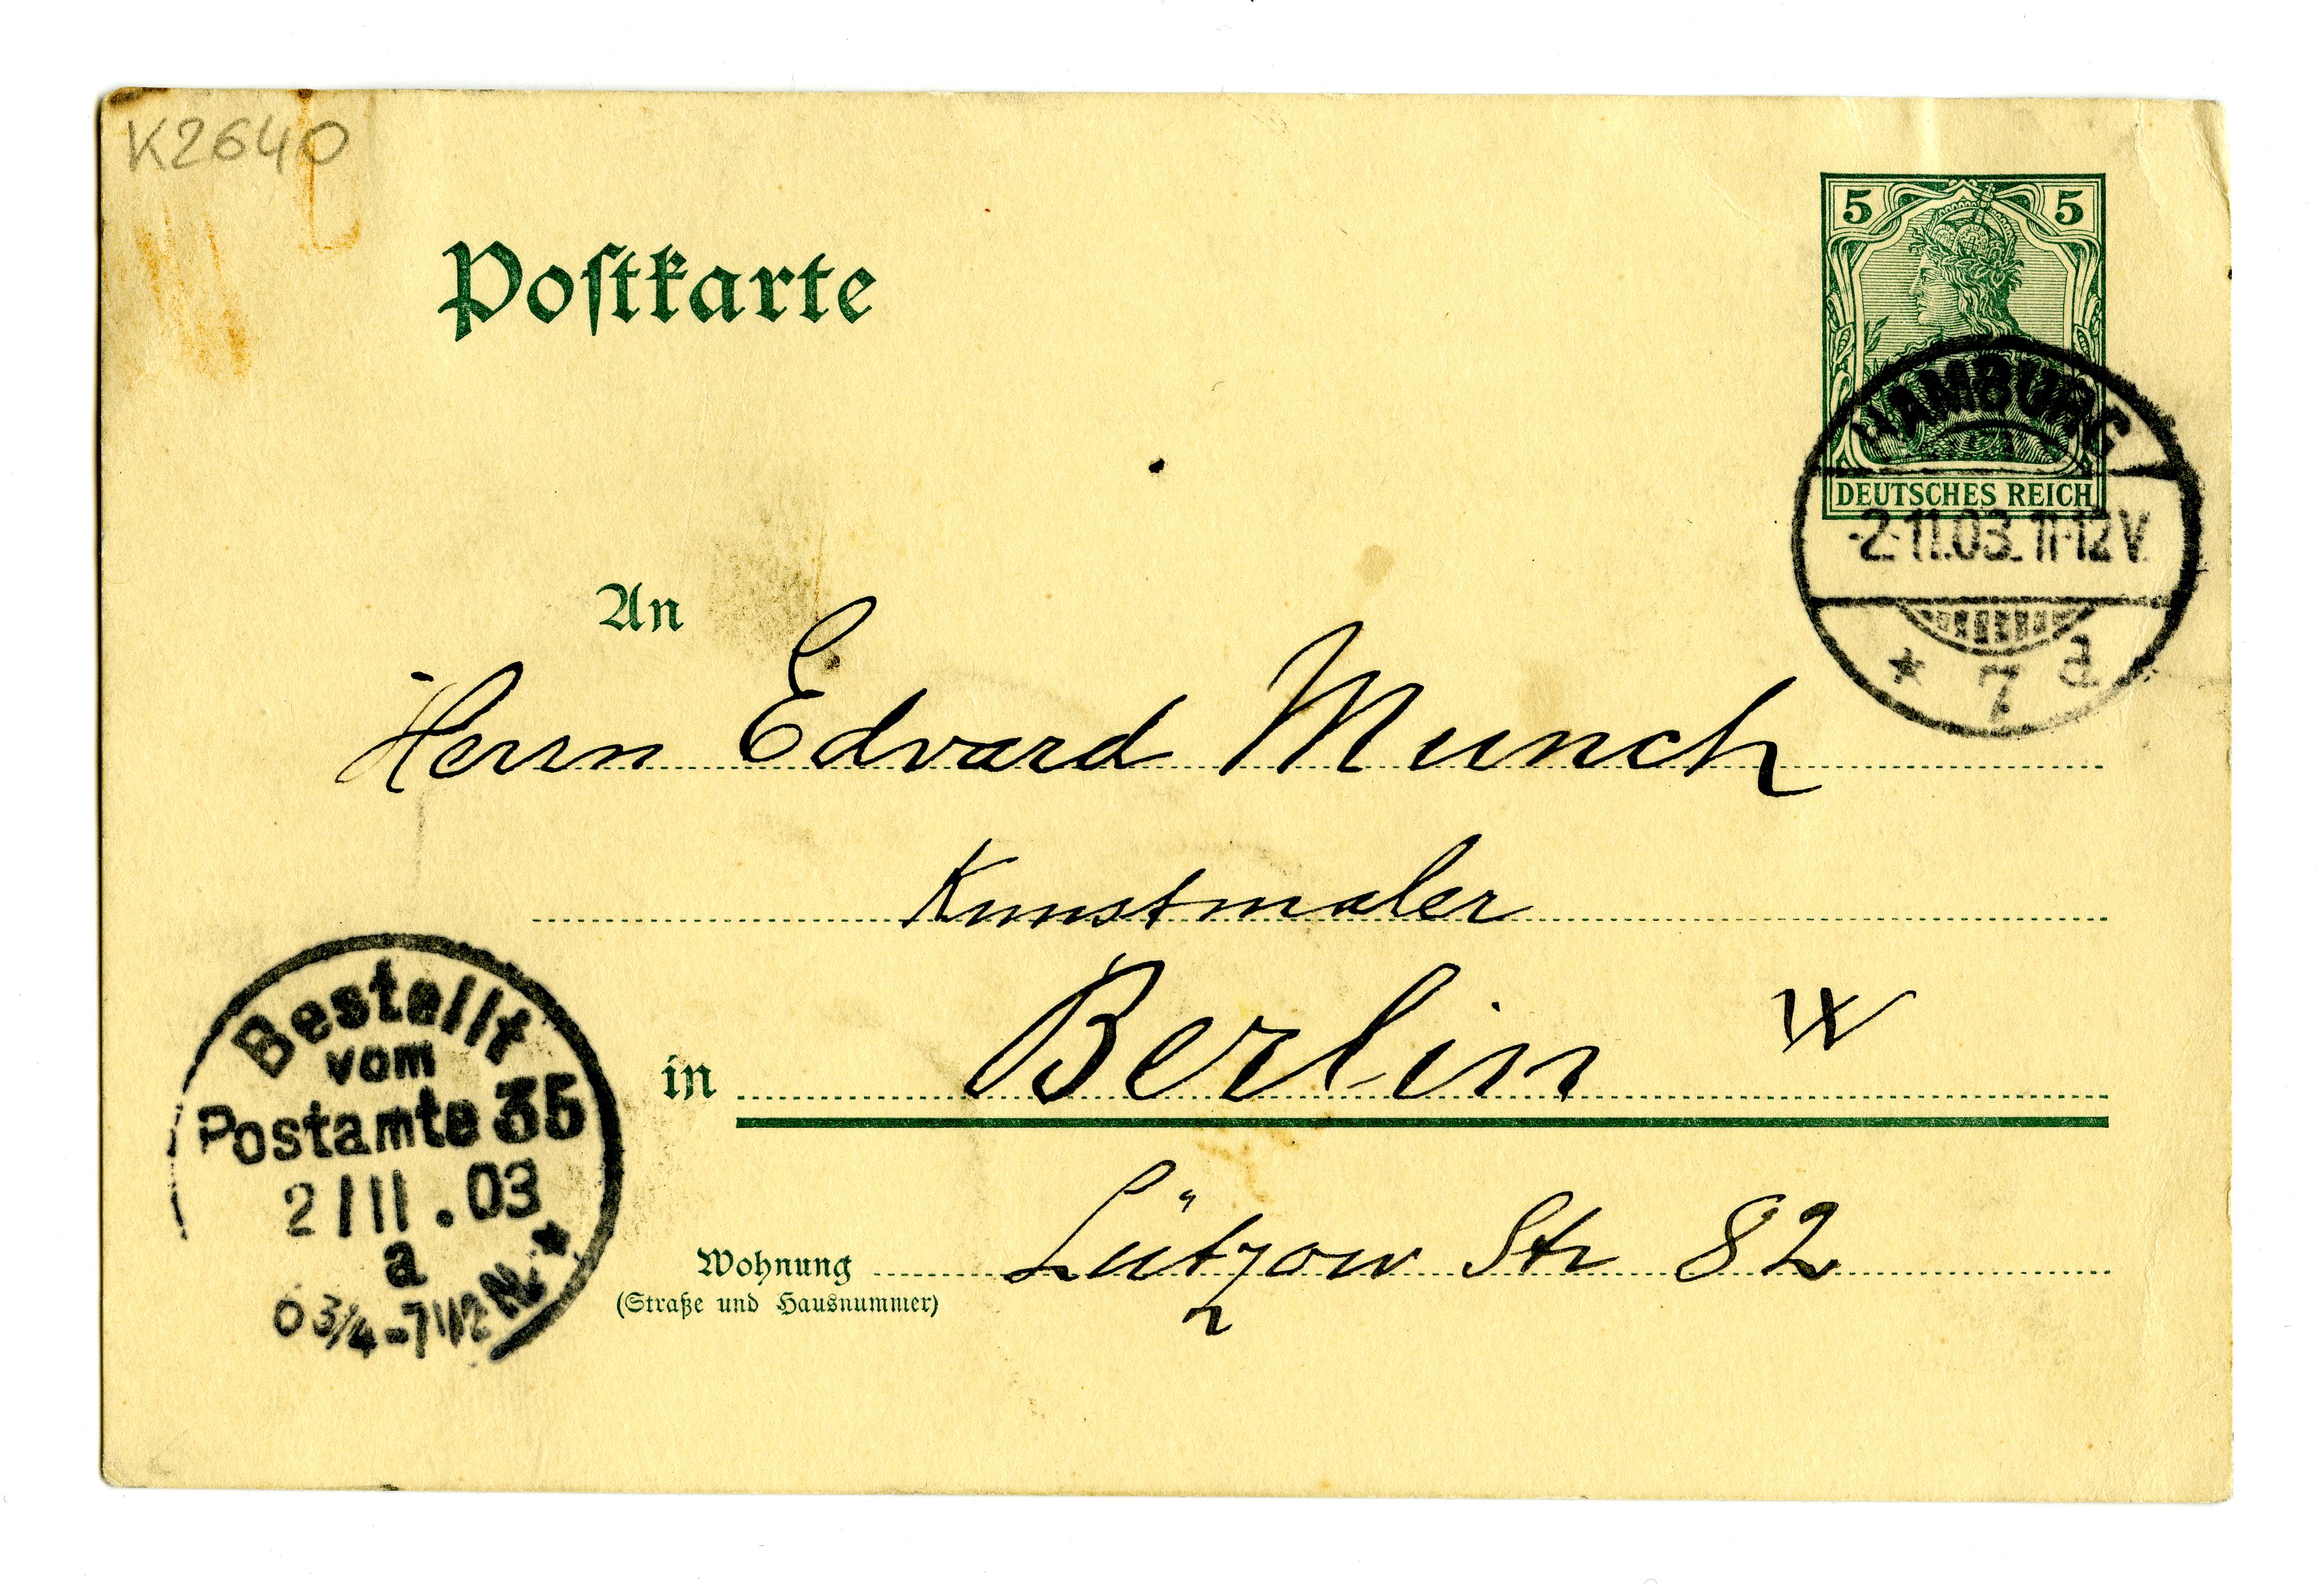 K2640
Postkarte
5 5
DEUTSCHES REICH
HAMBURG
-2.11.03.11-12V.
* 7 a
An
Herrn Edvard Munch
Kunstmaler
in Berlin W
Wohnung Lützow Str 82
(Straße und Hausnummer)
Bestellt
vom
Postamte 35
2/11.03
a
6 3/4-7 1/2 N. *